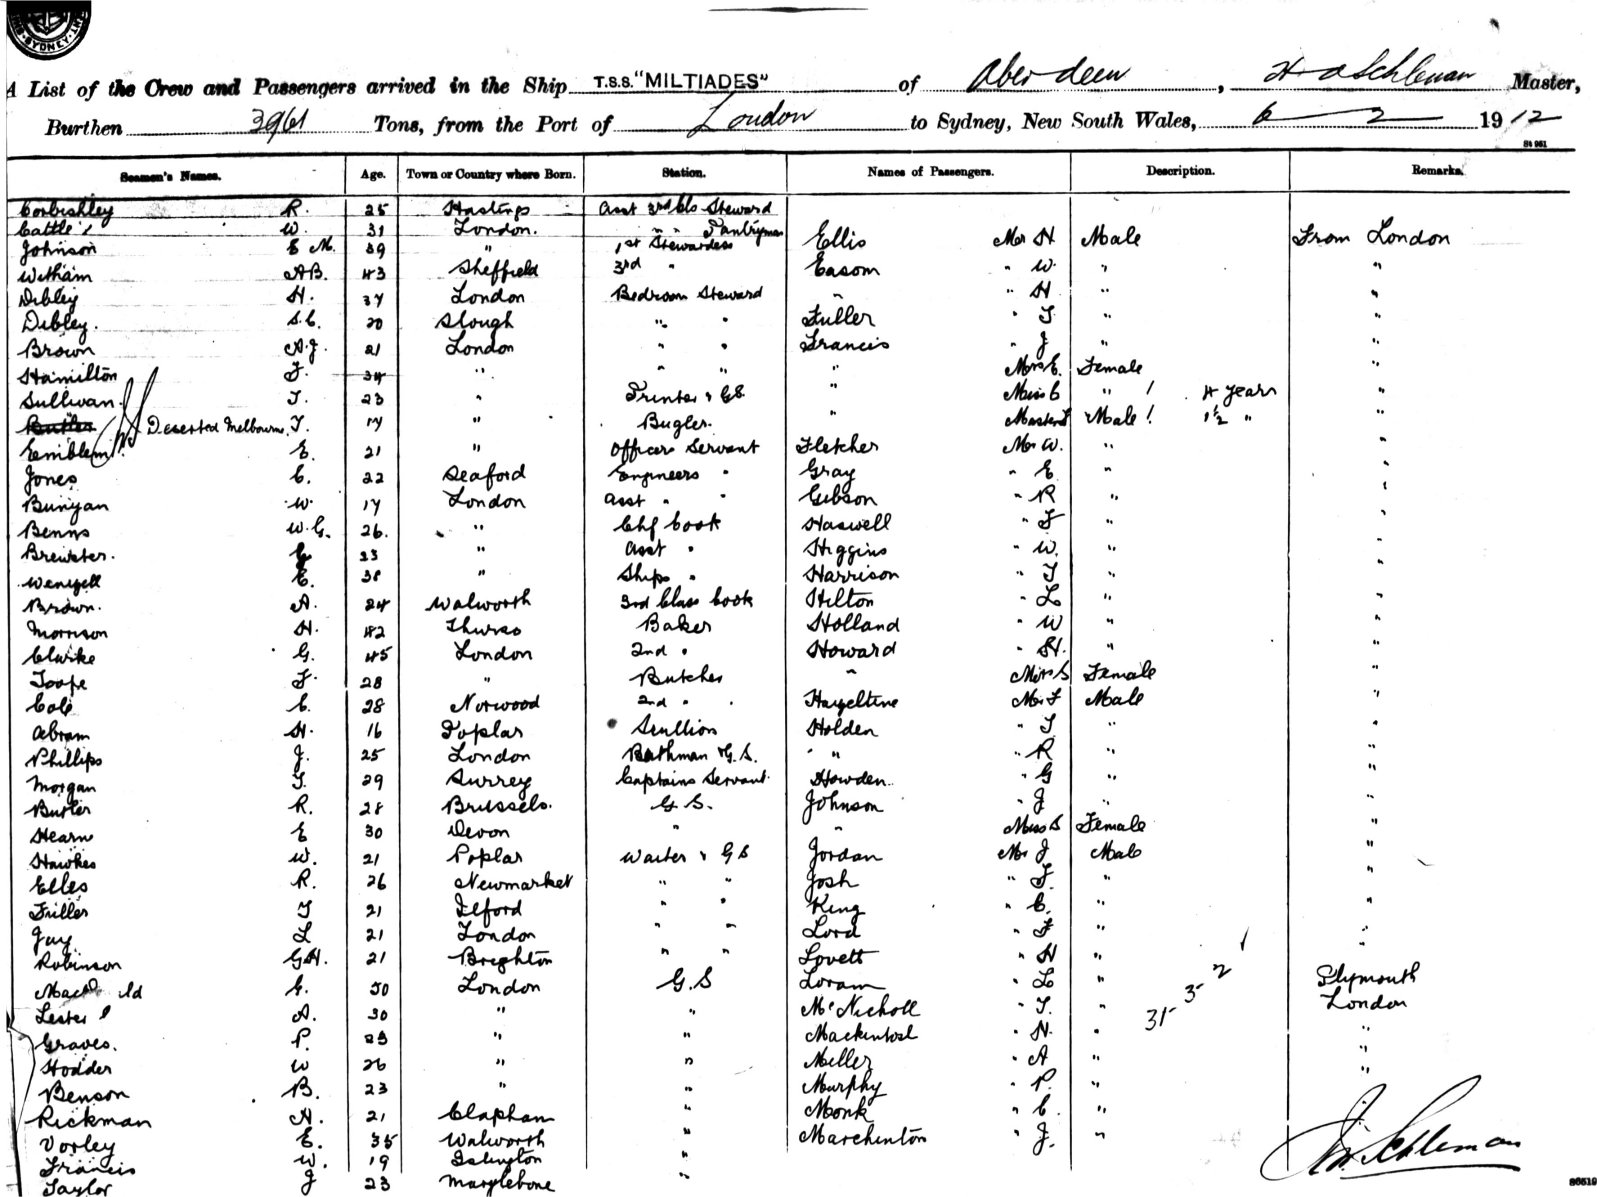 SYDNEY
A List of the Crew and Passengers arrived in the Ship T.S.S. "MILTIADES" of Aberdeen, Master,
Burthen 3961 Tons, from the Port of London to Sydney, New South Wales, 6 2 1912
St 961
Seamen's Names. Age. Town or Country where Born. Station. Names of Passengers. Description. Remarks.
Corbishley R. 25 Hastings Asst 3rd Cls Steward
Cattle W. 31 London. " " Pantryman
Johnson E M. 39 " 1st Stewardess Ellis Mr H Male From London
Witham A B. 43 Sheffield 3rd " Easom " W. " "
Dibley H. 37 London Bedroom Steward " " H " "
Dibley. S.C. 20 Slough " " Fuller " T " "
Brown A.J. 21 London " " Francis " J " "
Hamilton F. 34 " " " " Mrs E. Female "
Sullivan. T. 23 " Printer & G.S. " Miss C " 4 years "
Butler Deserted Melbourne. T. 17 " Bugler. Master Male 1½ " "
Emblem E. 21 " Officers Servant Fletcher Mr W. " "
Jones C. 22 Seaford Engineers " Gray " E " "
Bunyan W. 17 London Asst " " Gibson " R " "
Benns W.G. 26. " Chf Cook Haswell " F " "
Brewster. G 23 " Asst " Higgins " W. " "
Wenzell E. 38 " Ships " Harrison " T " "
Brown. A. 24 Walworth 3rd Class Cook Hilton " L " "
Morrison H. 42 Thurso Baker Holland " W " "
Clarke G. 45 London 2nd " Howard " H. " "
Toope F. 28 " Butcher " Miss S Female "
Cole C. 28 Norwood 2nd " Hazeltine Mr F Male "
Abram H. 16 Poplar Scullion Holden " T " "
Phillips J. 25 London Bathman & G.S. " " R " "
Morgan T. 29 Surrey Captains Servant Howden " G " "
Butler R. 28 Brussels. G S. Johnson " J " "
Hearn E 30 Devon " " Miss S Female "
Hawkes W. 21 Poplar Waiter & G S Jordan Mr J Male "
Elles R. 26 Newmarket " " Josh " F. " "
Fuller T 21 Ilford " " King " C. " "
Jay L 21 London " " Lord " F " "
Robinson G H. 21 Brighton " " Lovett " H " "
G. 50 London G.S Loram " L " Plymouth
Lester A. 30 " " McNicholl " T. " 31 - 3 - 2 London
Graves. P. " " Mackintosh " N. " "
Hodder W 26 " " Miller " A " "
Benson B. 23 " " Murphy " P. " "
Rickman A. 21 Clapham " Monk " C. "
Vorley E. 35 Walworth " Marchinton " J. "
Francis W. 19 Islington "
Taylor J 23 Marylebone "